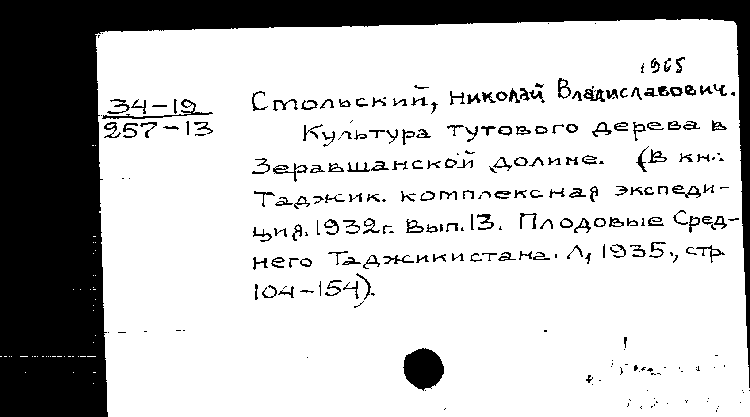 1965
34-19
257-13
Стольский, Николай Владиславович.
Культура тутового дерева в
Зеравшанской долине. (В кн.:
Таджик. комплексная экспеди-
ция. 1932г. Вып. 13. Плодовые Сред-
него Таджикистана. Л, 1935, стр.
104-154).